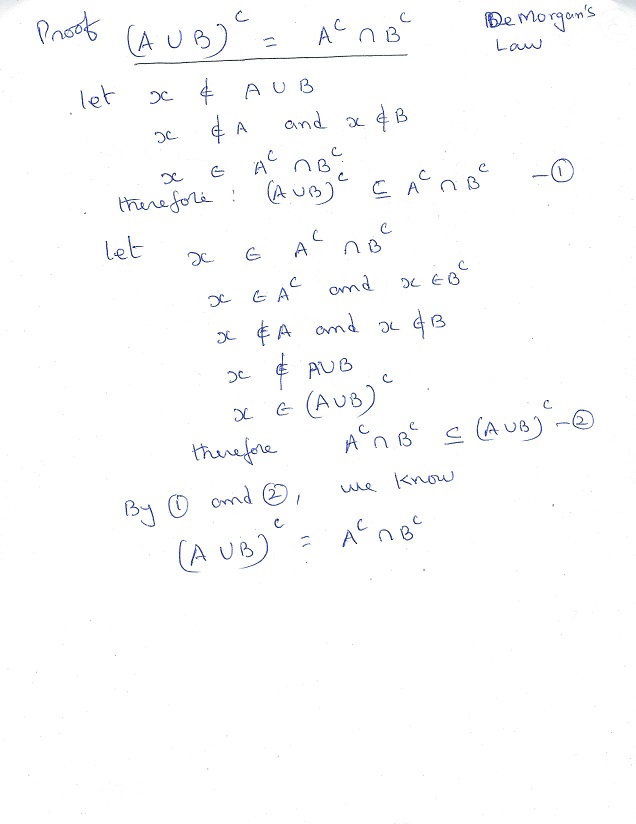 Proof (A ∪ B)ᶜ = Aᶜ ∩ Bᶜ
De Morgan's
Law
let x ∉ A ∪ B
x ∉ A and x ∉ B
x ∈ Aᶜ ∩ Bᶜ
therefore : (A ∪ B)ᶜ ⊆ Aᶜ ∩ Bᶜ – ①
let x ∈ Aᶜ ∩ Bᶜ
x ∈ Aᶜ and x ∈ Bᶜ
x ∉ A and x ∉ B
x ∉ A ∪ B
x ∈ (A ∪ B)ᶜ
therefore Aᶜ ∩ Bᶜ ⊆ (A ∪ B)ᶜ – ②
By ① and ②, we know
(A ∪ B)ᶜ = Aᶜ ∩ Bᶜ